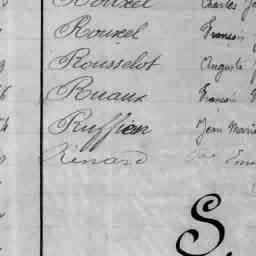 Rouxel Charles
Rouxel François
Rousselot Auguste
Ruaux François
Ruffien Jean Marie
Rénard
S.